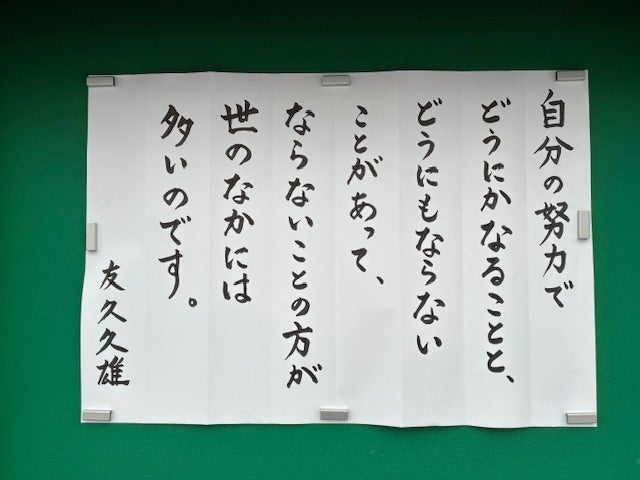 自分の努力で
どうにかなることと、
どうにもならない
ことがあって、
ならないことの方が
世のなかには
多いのです。
友久久雄